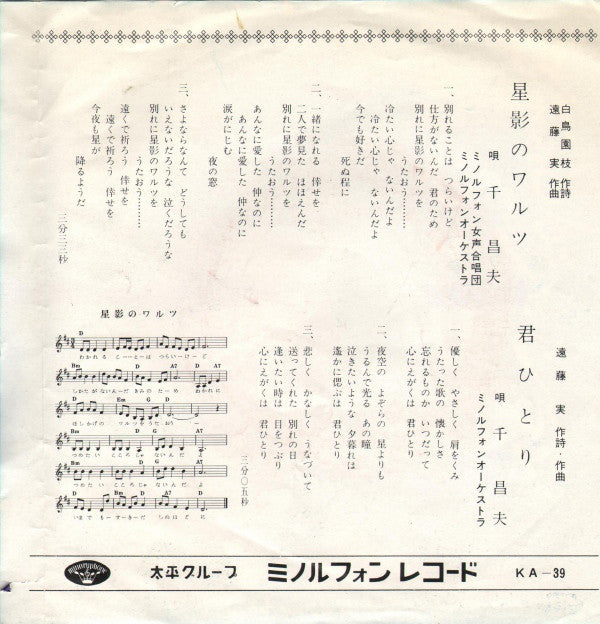 白鳥園枝 作詩
遠藤 実 作曲
星影のワルツ
唄 千 昌夫
ミノルフォン女声合唱団
ミノルフォンオーケストラ
一、別れることは つらいけど
仕方がないんだ 君のため
別れに星影のワルツを
うたおう……
冷たい心じゃ ないんだよ
冷たい心じゃ ないんだよ
今でも好きだ
死ぬ程に
二、一緒になれる 倖せを
二人で夢見た ほほえんだ
別れに星影のワルツを
うたおう……
あんなに愛した 仲なのに
あんなに愛した 仲なのに
涙がにじむ
夜の窓
三、さよならなんて どうしても
いえないだろうな 泣くだろうな
別れに星影のワルツを
うたおう……
遠くで祈ろう 倖せを
遠くで祈ろう 倖せを
今夜も星が
降るようだ
三分二三秒
遠藤 実 作詩・作曲
君ひとり
唄 千 昌夫
ミノルフォンオーケストラ
一、優しく やさしく 肩をくみ
うたった歌の 懐かしさ
忘れるものか いつだって
心にえがくは 君ひとり
二、夜空の よぞらの 星よりも
うるんで光る あの瞳
泣きたいような 夕暮れは
遙かに偲ぶは 君ひとり
三、悲しく かなしく うなづいて
送ってくれた 別れの日
逢いたい時は 目をつぶり
心にえがくは 君ひとり
三分〇五秒
星影のワルツ
D
わかれる こーーとーは つらいーけーど
Bm Em G A7
しかたがないんーだ きみのたーめ わかれに
D G D
ほしかげの ワルツをうたおうー
Bm G A7
つめたい こころじゃ ないんだよ
D G A7
つめたい こころじゃ ないんだよ
D Bm D A7 D
いまで もーすーきーだ しぬほどに
minoruphone
太平グループ ミノルフォン レコード KA-39